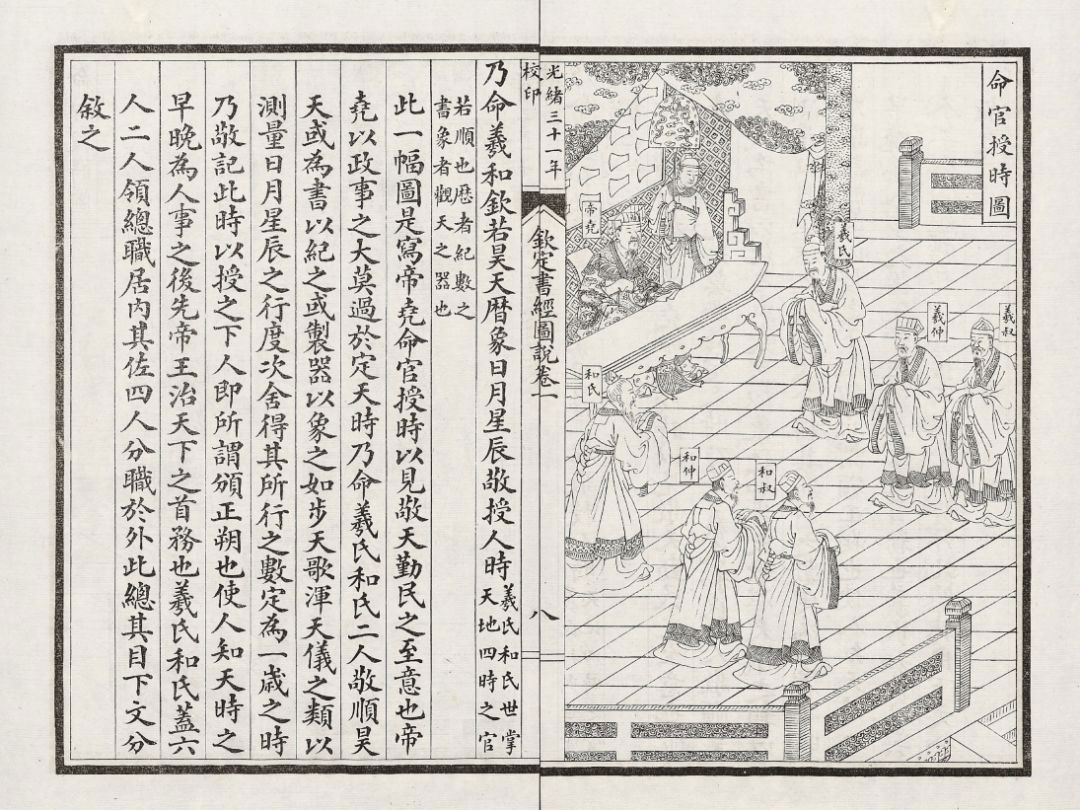 命官授時圖
帝堯
羲氏
羲仲
羲叔
和氏
和仲
和叔
光緒三十一年
校印
欽定書經圖說卷一
八
乃命羲和欽若昊天曆象日月星辰敬授人時
羲氏和氏世掌
天地四時之官
若順也曆者紀數之
書象者觀天之器也
此一幅圖是寫帝堯命官授時以見敬天勤民之至意也帝
堯以政事之大莫過於定天時乃命羲氏和氏二人敬順昊
天或為書以紀之或製器以象之如步天歌渾天儀之類以
測量日月星辰之行度次舍得其所行之數定為一歲之時
乃敬記此時以授之下人即所謂頒正朔也使人知天時之
早晚為人事之後先帝王治天下之首務也羲氏和氏蓋六
人二人領總職居內其佐四人分職於外此總其目下文分
敘之